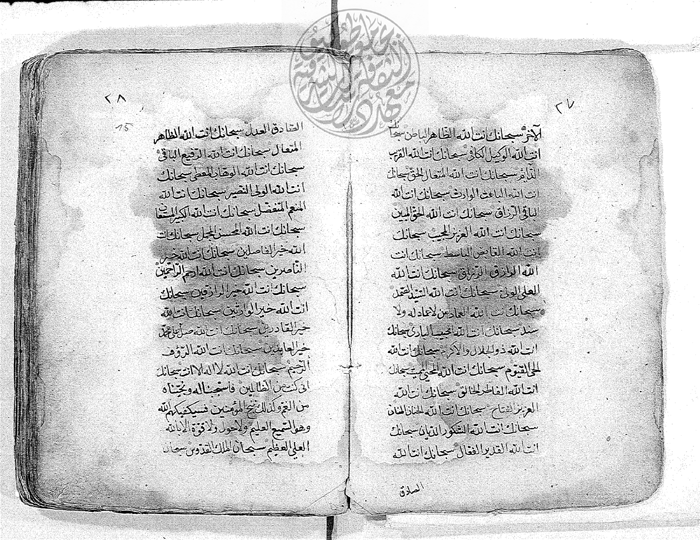 ٢٧
الآخر سبحانك انت الله الظاهر الباطن سبحانك
انت الله الوكيل الكافي سبحانك انت الله القريب
الدائم سبحانك انت الله المتعال الحق سبحانك
انت الله الباعث الوارث سبحانك انت الله
الباقي الرزاق سبحانك انت الله الحق المبين
سبحانك انت الله العزيز المجيب سبحانك
انت الله القابض الباسط سبحانك انت
الله سبحانك انت الله
العلي الولي سبحانك انت الله السيد الصمد
سبحانك انت الله العماد من لا عماد له ولا
سند سبحانك انت الله المجيب الباري سبحانك
انت الله ذو الجلال والاكرام سبحانك انت الله
الحي القيوم سبحانك انت الله سبحانك
انت الله الفاطر الخالق سبحانك انت الله
العزيز الفتاح سبحانك انت الله الحنان المنان
سبحانك انت الله الشكور الديان سبحانك
انت الله القدير الفعال سبحانك انت الله
الصادق
٢٨
15
الصادق العدل سبحانك انت الله الظاهر
المتعال سبحانك انت الله الرفيع الباقي
سبحانك انت الله الوهاب المعطي سبحانك
انت الله الولي النصير سبحانك انت الله
المنعم المتفضل سبحانك انت الله الكبير
سبحانك انت الله المحسن المجمل سبحانك انت
الله خير الفاصلين سبحانك انت الله خير
الناصرين سبحانك انت الله ارحم الراحمين
سبحانك انت الله خير الرازقين سبحانك
انت الله خير الوارثين سبحانك انت الله
خير القادرين سبحانك انت الله
خير سبحانك انت الله الرؤف
الرحيم سبحانك انت الله لا اله الا انت سبحانك
اني كنت من الظالمين فاستجبنا له ونجيناه
من الغم وكذلك ننجي المؤمنين فسيكفيكهم الله
وهو السميع العليم ولا حول ولا قوة الا بالله
العلي العظيم سبحان الملك القدوس سبحان